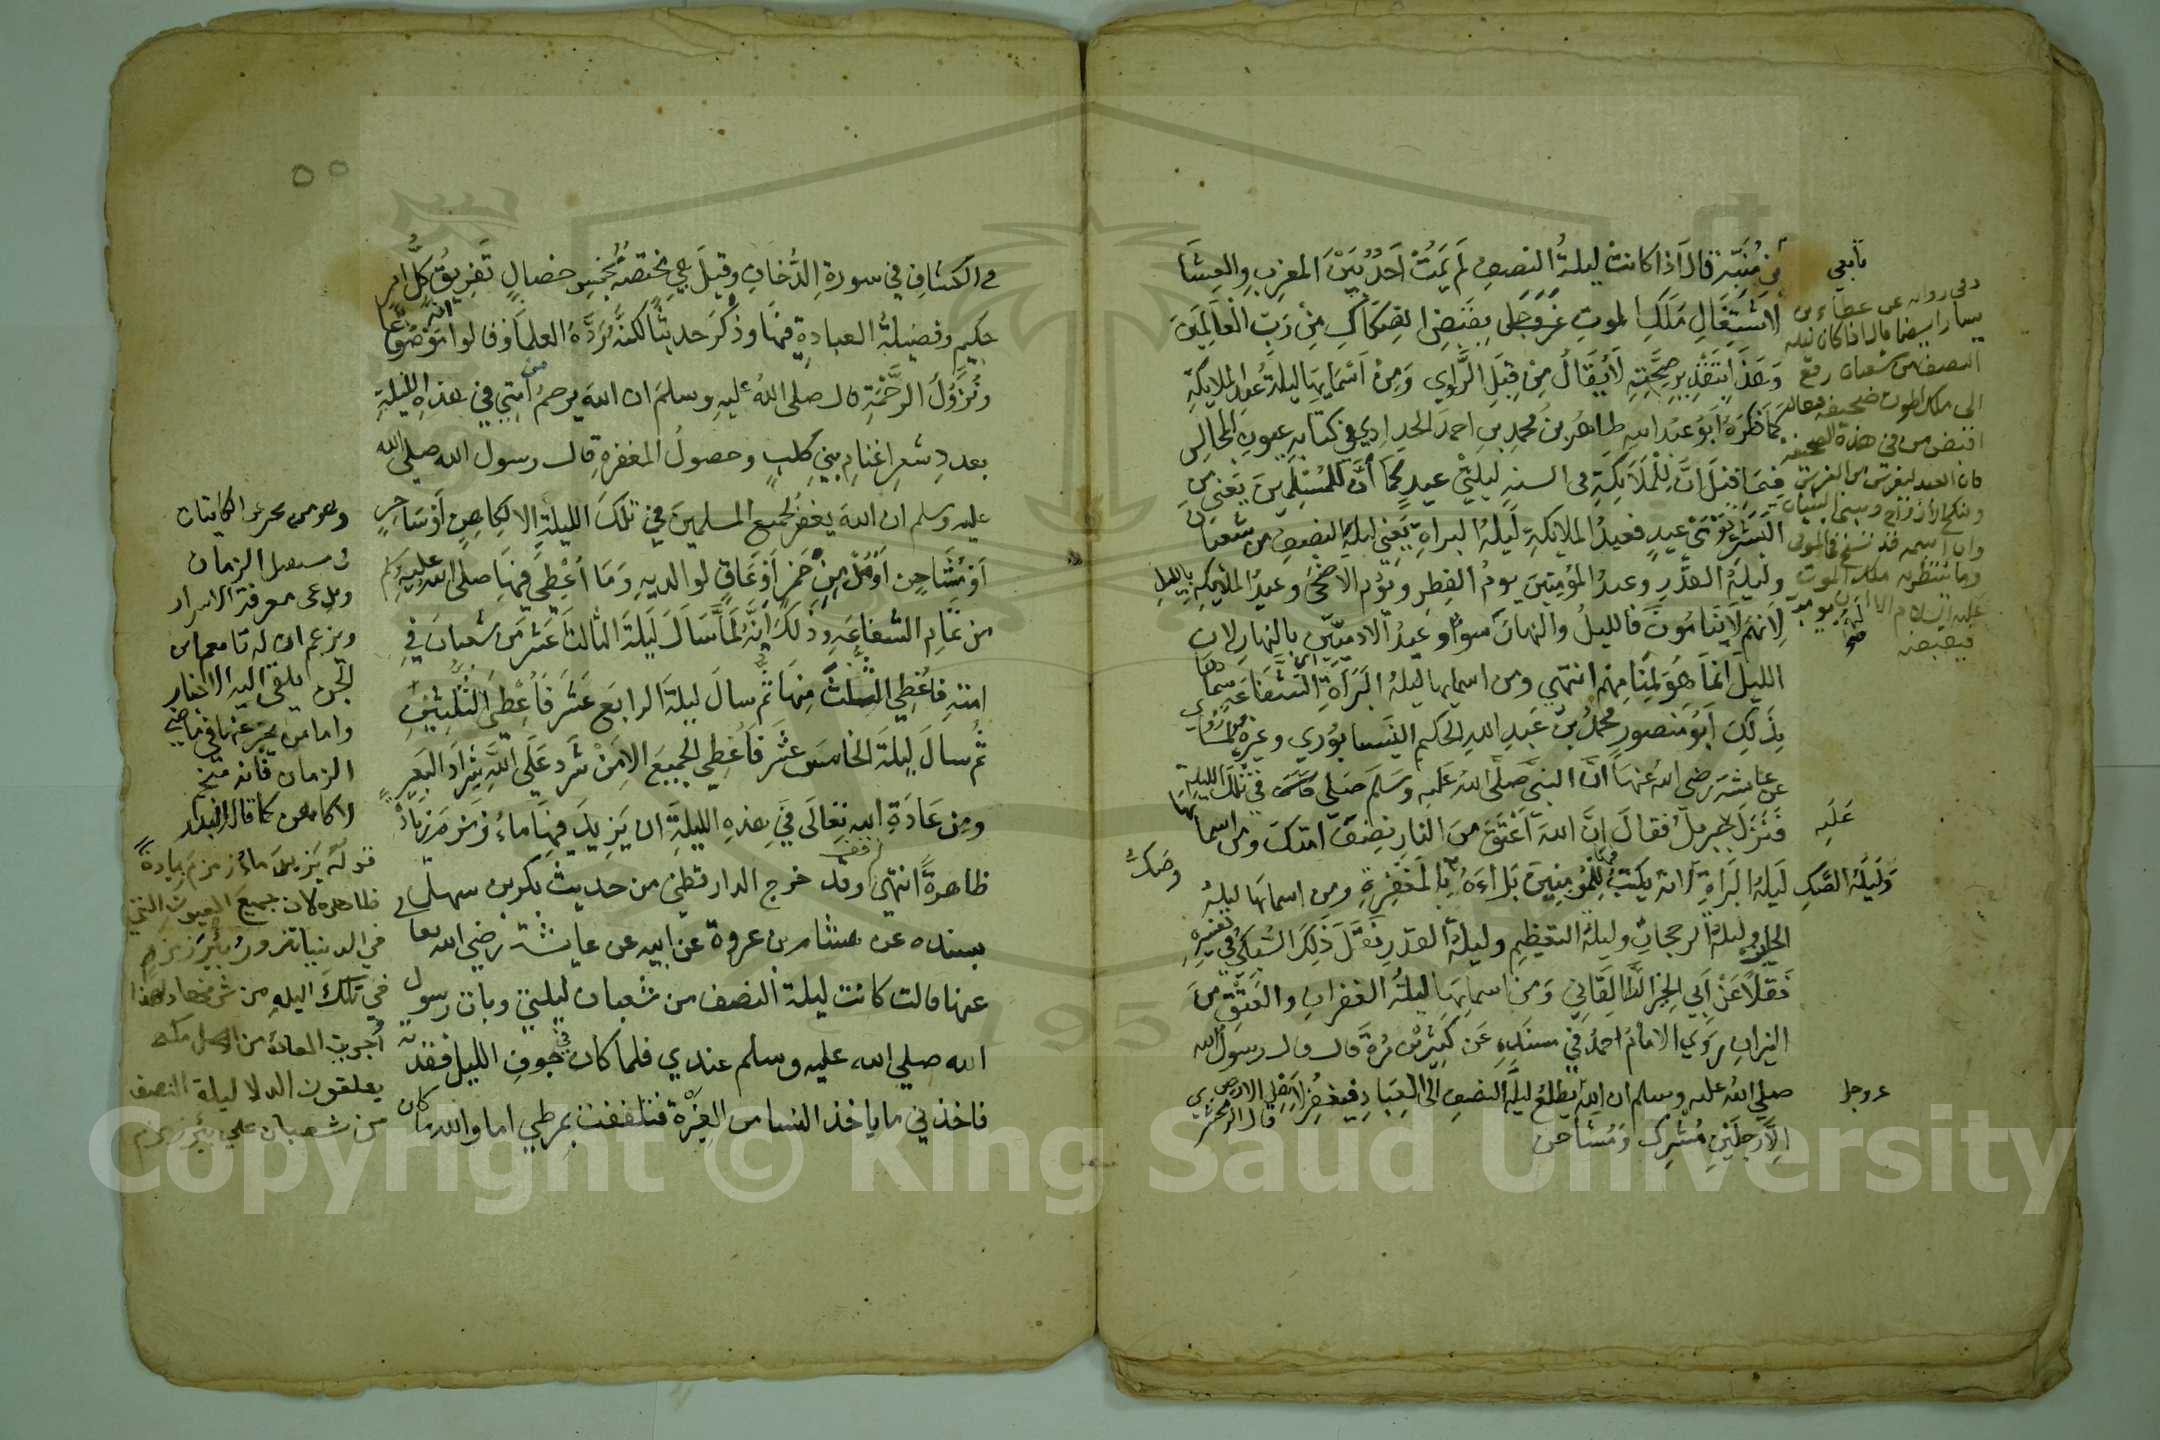 بن منبه قال اذا كانت ليلة النصف لم يمت احد بين المغرب والعشا
لاشتغال ملك الموت بقبض الصكاك من رب العالمين
وهذا بتقدير صحته لا يقال من قبل الراوي ومن اسمايها ليلة عيد الملايكة
كما ذكره ابو عبد الله طاهر بن محمد بن احمد الحدادي في كتابه عيون المجالس
فيما قيل ان للملايكة في السنة ليلتي عيد كما ان للمسلمين يعني من
البشر يومي عيد فعيد الملايكة ليلة البراة يعني ليلة النصف من شعبان
وليلة القدر وعيد المؤمنين يوم الفطر ويوم الاضحى وعيد الملايكة بالليل
لانهم لا ينامون فالليل والنهار سوا وعيد الادميين بالنهار لان
الليل انما هو لمنامهم انتهي ومن اسمايها ليلة الشفاعة سماها
بذلك ابو منصور محمد بن عبد الله الحكيم النيسابوري وغيره
عن عايشة رضي الله عنها ان النبي صلى الله عليه وسلم صلى في تلك الليلة
فنزل جبريل فقال ان الله اعتق من النار نصف امتك ومن اسمايها
وليلة الصك ليلة البراة لانه يكتب للمؤمنين براءة بالمغفرة ومن اسمايها ليلة
وليلة الرجحان وليلة التعظيم وليلة القدر نقل ذلك السبكي في تفسيره
نقلا عن ابي الخير الطالقاني ومن اسمايها ليلة الغفران والعتق من
النيران روي الامام احمد في مسنده عن كثير بن مرة قال قال رسول الله
صلي الله عليه وسلم ان الله يطلع ليلة النصف الى العباد فيغفر لاهل الارض
الا رجلين مشرك ومشاحن قال الزمخشري
تابعي
وفي رواية عن عطاء بن
يسار ايضا قال اذا كان ليلة
النصف من شعبان رفع
الى ملك الموت صحيفة فيقال
اقبض من في هذه الصحيفة
فان العبد ليغرس الغرس
وينكح الازواج ويبني البنيان
وان اسمه قد نسخ في الموتى
وما ينتظر به ملك الموت
عليه السلام الا ان يومر به
فيقبضه
عليه
وصك
عز وجل
في الكشاف في سورة الدخان وقيل هي مختصة بخمس خصال تفريق كل امر
حكيم وفضيلة العبادة فيها وذكر حديثا لكنه رده العلما وقالوا انه موضوع
ونزول الرحمة قال صلى الله عليه وسلم ان الله يرحم من امتي في هذه الليلة
بعدد شعر اغنام بني كلب وحصول المغفرة قال رسول الله صلي الله
عليه وسلم ان الله يغفر لجميع المسلمين في تلك الليلة الا لكاهن او ساحر
او مشاحن او مدمن خمر او عاق لوالديه وما اعطي فيها صلى الله عليه وسلم
من تمام الشفاعة وذلك انه لما سال ليلة الثالث عشر من شعبان في
امته فاعطي الثلث منها ثم سال ليلة الرابع عشر فاعطي الثلثين
ثم سال ليلة الخامس عشر فاعطي الجميع الا من شرد على الله شراد البعير
ومن عادة الله تعالى في هذه الليلة ان يزيد فيها ماء زمزم زيادة
ظاهرة انتهي وقد خرج الدارقطني من حديث بكر بن سهل
بسنده عن هشام بن عروة عن ابيه عن عايشة رضي الله تعا
عنها قالت كانت ليلة النصف من شعبان ليلتي وبات رسول
الله صلي الله عليه وسلم عندي فلما كان في جوف الليل فقدته
فاخذني ما ياخذ النسا من الغيرة فتلففت بمرطي اما والله ما كان
وهو من يخبر عن الكاينات
في مستقبل الزمان
ويدعى معرفة الاسرار
ويزعم ان له تابعا من
الجن يلقي اليه الاخبار
واما من يخبر عنها في ماضي
الزمان فانه
لا كاهن كما قال
قوله يزيد ماء زمزم زيادة
ظاهرة لان جميع العيون التي
في الدنيا تزور بير زمزم
في تلك الليلة من شرفها ولهذا
اجريت العادة من اهل مكه
يعلقون الدلا ليلة النصف
من شعبان علي بير زمزم
Copyright © King Saud University